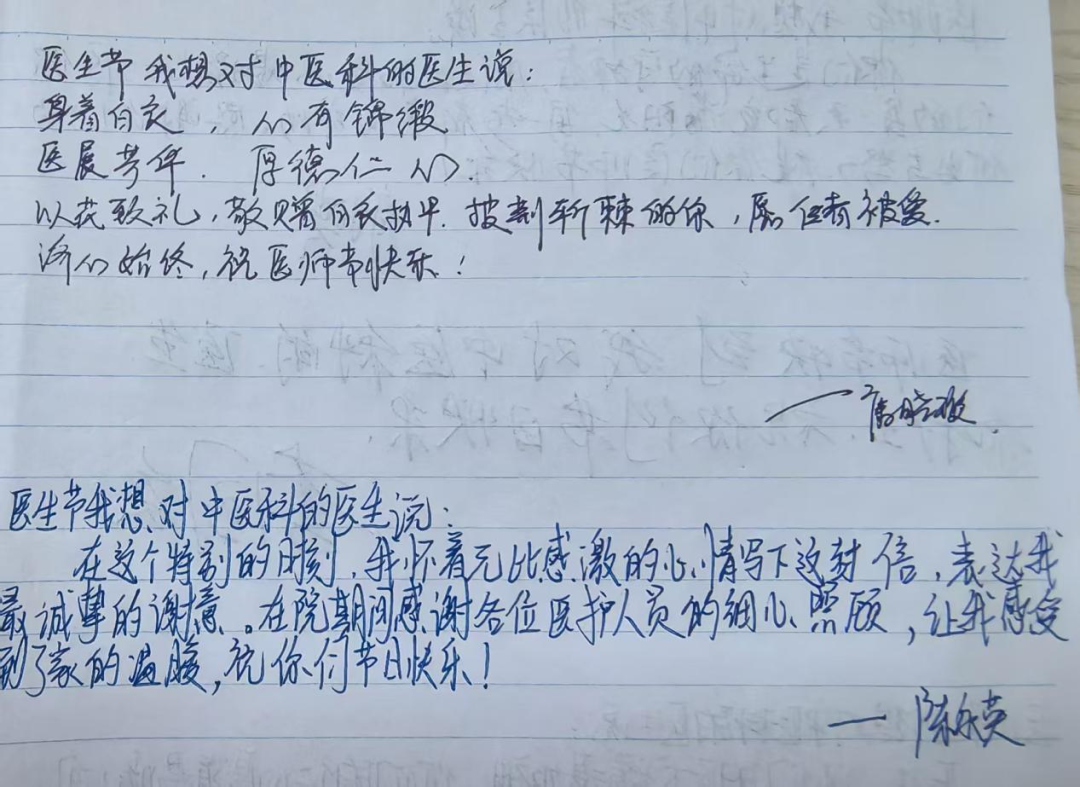 医生节 我想对中医科的医生说：
身着白衣，心有锦缎
医展芳华．厚德仁心．
以花致礼，敬赠白衣执甲．披荆斩棘的你，愿仁者被爱．
济心始终，祝医师节快乐！
医生节我想对中医科的医生说：
在这个特别的时刻，我怀着无比感激的心情写下这封信，表达我
最诚挚的谢意。在院期间感谢各位医护人员的细心照顾，让我感受
到了家的温暖，祝你们节日快乐！
—— 陈永英